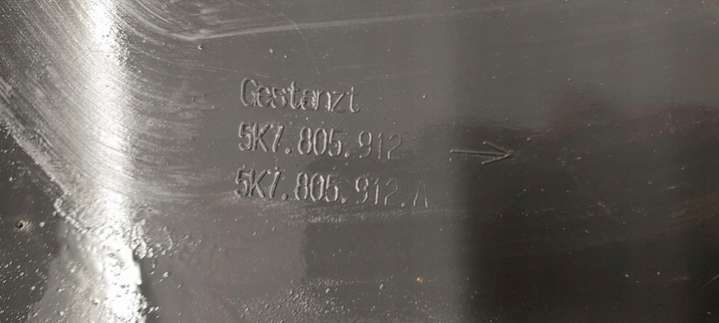 Gestanzt
5K7.805.912 →
5K7.805.912.A